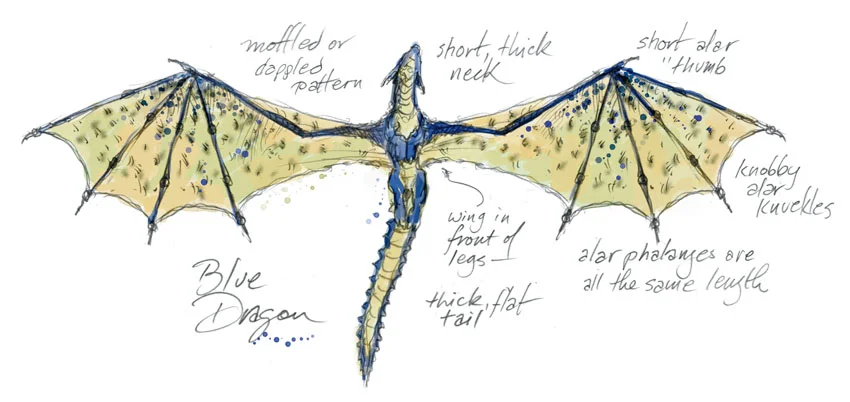 mottled or
dappled
pattern
short, thick
neck
short alar
"thumb
knobby
alar
knuckles
wing in
front of
legs
alar phalanges are
all the same length
thick, flat
tail
Blue
Dragon